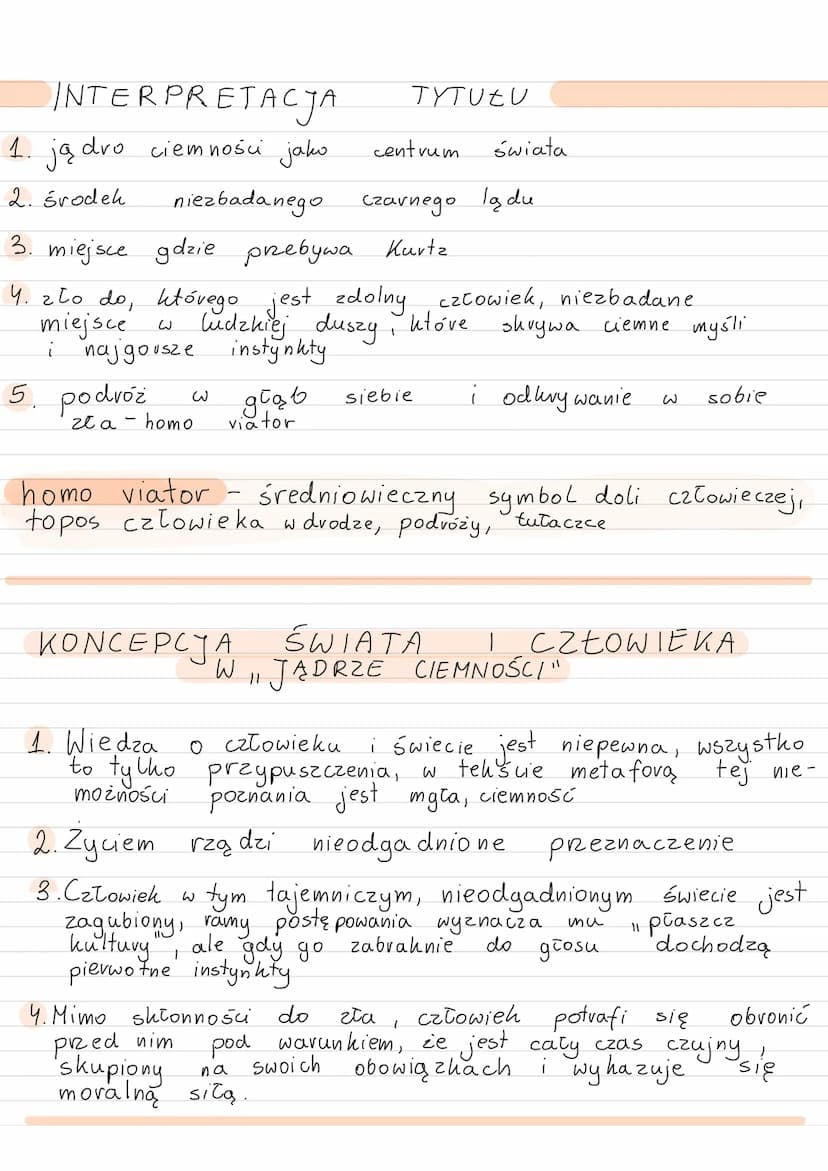 INTERPRETACJA TYTUŁU
1. jądro ciemności jako centrum świata
2. środek niezbadanego czarnego lądu
3. miejsce gdzie przebywa Kurtz
4. zło do, którego jest zdolny człowiek, niezbadane
miejsce w ludzkiej duszy, które skrywa ciemne myśli
i najgorsze instynkty
5. podróż w głąb siebie i odkrywanie w sobie
zła - homo viator
homo viator - średniowieczny symbol doli człowieczej,
topos człowieka w drodze, podróży, tułaczce
KONCEPCJA ŚWIATA I CZŁOWIEKA
W „JĄDRZE CIEMNOŚCI"
1. Wiedza o człowieku i świecie jest niepewna, wszystko
to tylko przypuszczenia, w tekście metaforą tej nie-
możności poznania jest mgła, ciemność
2. Życiem rządzi nieodgadnione przeznaczenie
3. Człowiek w tym tajemniczym, nieodgadnionym świecie jest
zagubiony, ramy postępowania wyznacza mu „płaszcz
kultury", ale gdy go zabraknie do głosu dochodzą
pierwotne instynkty
4. Mimo skłonności do zła, człowiek potrafi się obronić
przed nim pod warunkiem, że jest cały czas czujny,
skupiony na swoich obowiązkach i wykazuje się
moralną siłą.